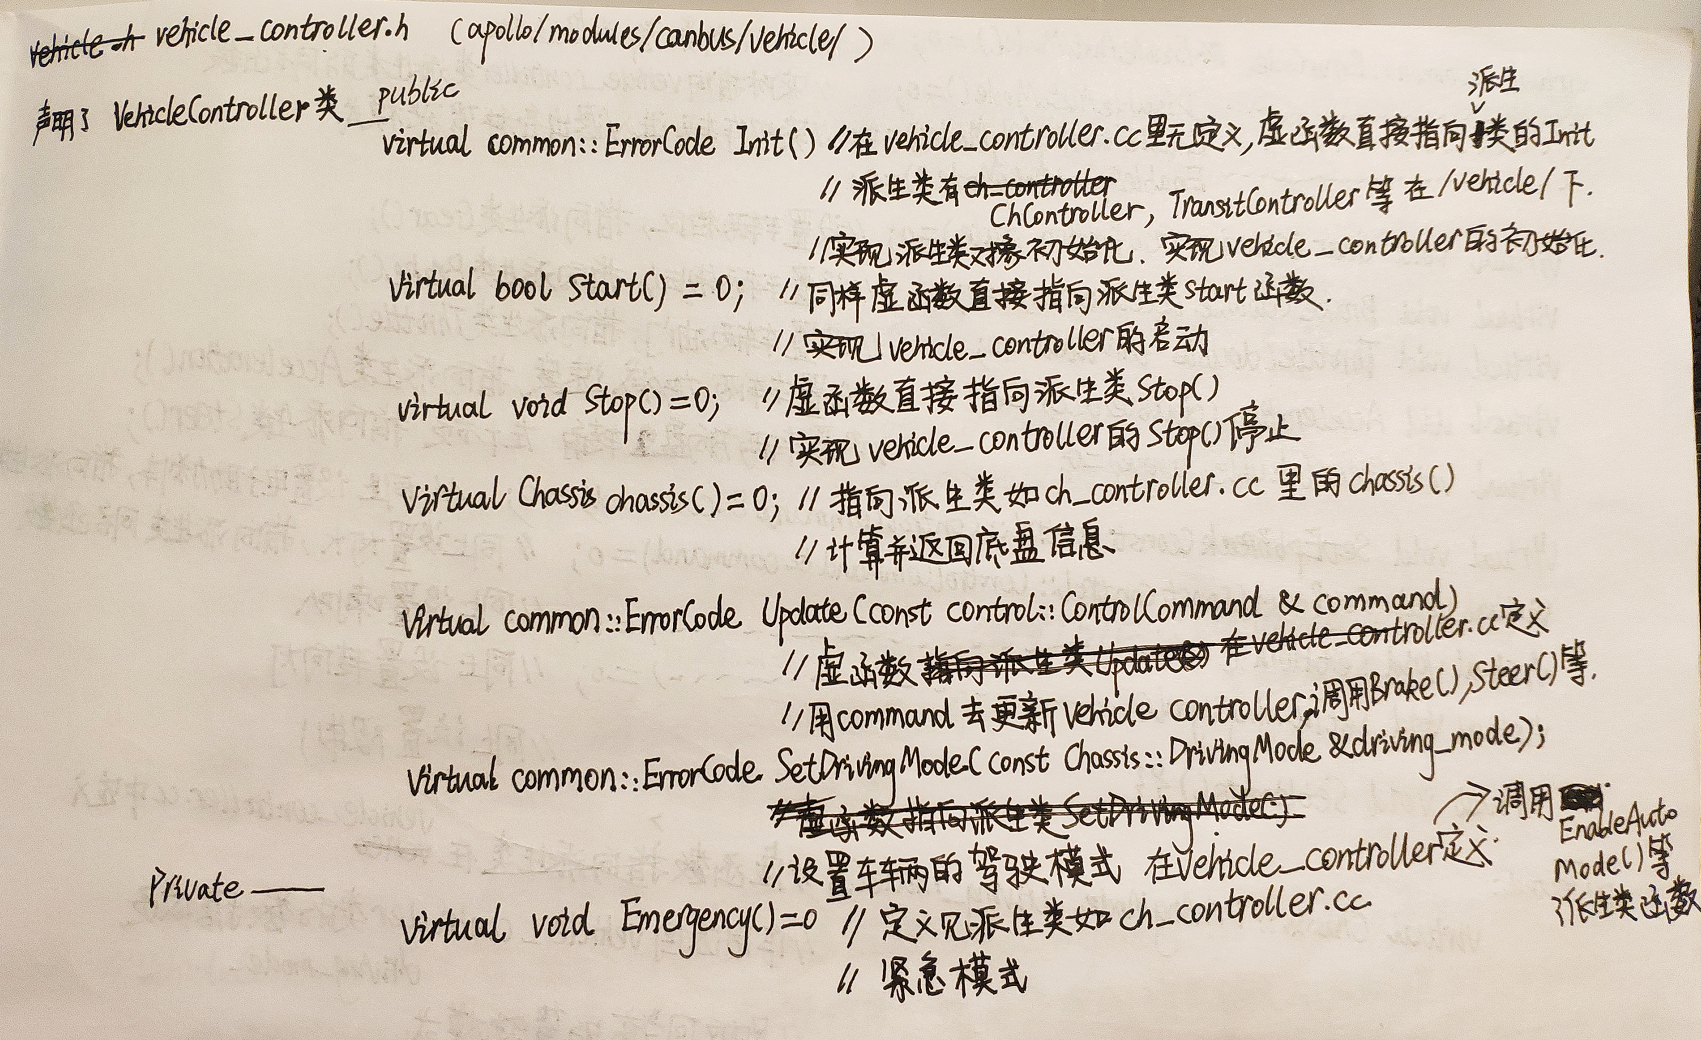 vehicle.h vehicle_controller.h (apollo/modules/canbus/vehicle/)
声明了 VehicleController类 public
派生
virtual common::ErrorCode Init() //在vehicle_controller.cc里无定义,虚函数直接指向类的Init
//派生类有ch_controller
ChController, TransitController等在/vehicle/下.
//实现派生类对象初始化. 实现vehicle_controller的初始化.
Virtual bool Start() = 0; //同样虚函数直接指向派生类start函数.
//实现vehicle_controller的启动
virtual void Stop()=0; //虚函数直接指向派生类Stop()
//实现vehicle_controller的Stop()停止
Virtual Chassis chassis()=0; //指向派生类如ch_controller.cc里的chassis()
//计算并返回底盘信息
Virtual common::ErrorCode Update(const control::ControlCommand & command)
//虚函数指向派生类Update() 在vehicle_controller.cc定义
//用command去更新vehicle controller,调用Brake(),Steer()等.
Virtual common::ErrorCode SetDrivingMode(const Chassis::DrivingMode &driving_mode);
//虚函数指向派生类SetDrivingMode()
//设置车辆的驾驶模式 在vehicle_controller定义.
调用
EnableAuto
Mode()等
派生类函数
Private
virtual void Emergency()=0 //定义见派生类如ch_controller.cc
//紧急模式